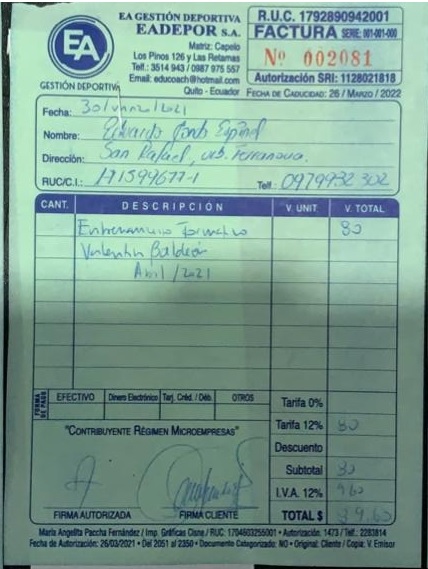 EA
GESTIÓN DEPORTIVA
EA GESTIÓN DEPORTIVA
EADEPOR S.A.
Matriz: Capelo
Los Pinos 126 y Las Retamas
Telf.: 3514 943 / 0987 975 557
Email: educoach@hotmail.com
Quito - Ecuador
R.U.C. 1792890942001
FACTURA SERIE: 001-001-000
Nº 002081
Autorización SRI: 1128021818
FECHA DE CADUCIDAD: 26 / MARZO / 2022
Fecha: 30/ /2021
Nombre: Eduardo Español
Dirección: San Rafael, urb. Terranova.
RUC/C.I.: 171599677-1 Telf: 0979932302
CANT. DESCRIPCIÓN V. UNIT V. TOTAL
Entrenamiento formativo 80
Valentín Baldeón
Abril /2021
FORMA DE PAGO EFECTIVO Dinero Electrónico Tarj. Créd. / Déb. OTROS
Tarifa 0%
"CONTRIBUYENTE RÉGIMEN MICROEMPRESAS"
Tarifa 12% 80
Descuento
Subtotal 80
I.V.A. 12% 9.60
TOTAL $ 89.60
FIRMA AUTORIZADA FIRMA CLIENTE
María Angelita Paccha Fernández / Imp. Gráficas Cisne / RUC: 1704603255001 - Autorización: 1473 / Telf.: 2283814
Fecha de Autorización: 26/03/2021 • Del 2051 al 2350 • Documento Categorizado: NO • Original: Cliente / Copia: V. Emisor